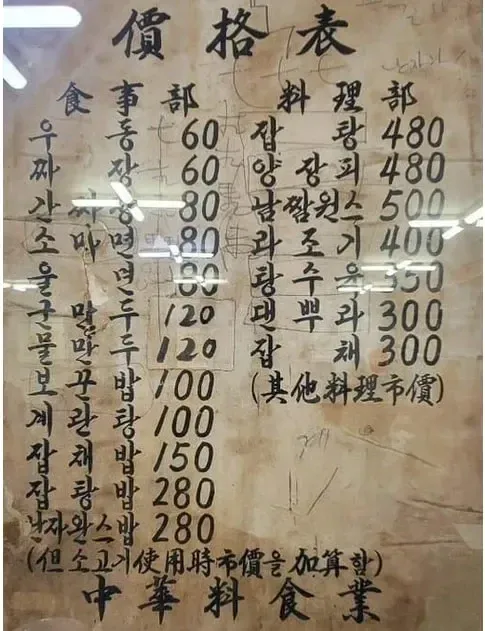 價格表
食事部
우동 60
짜장 60
간짜장 80
소마면 80
울면 80
군만두 120
물만두 120
보끈밥 100
계란탕 100
잡채밥 150
잡탕밥 280
난자완스밥 280
(但소고기使用時市價을加算함)
料理部
잡탕 480
양장피 480
남짬원스 500
라조기 400
탕수육 350
댄뿌라 300
잡채 300
(其他料理市價)
中華料食業